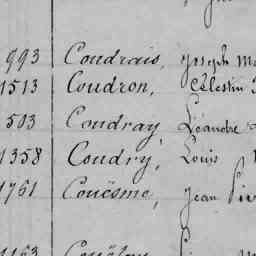 993 Coudrais, Joseph
1513 Coudron, Célestin
503 Coudray Léandre
1358 Coudry, Louis
1761 Couësme, Jean